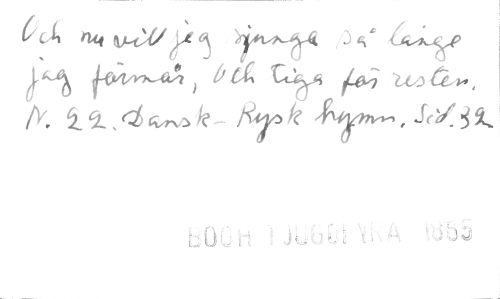 Och nu vill jag sjunga så länge
jag förmår, Och tiga för resten.
N. 22. Dansk-Rysk hymn. Sid. 32
BOCH TJUGOFYRA 1855